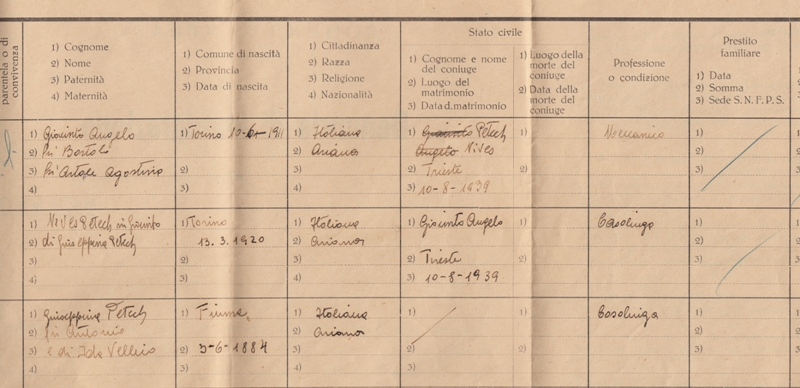 parentela o di
convivenza
1) Cognome
2) Nome
3) Paternità
4) Maternità
1) Comune di nascità
2) Provincia
3) Data di nascita
1) Cittadinanza
2) Razza
3) Religione
4) Nazionalità
Stato civile
1) Cognome e nome
del coniuge
2) Luogo del
matrimonio
3) Data d. matrimonio
1) Luogo della
morte del
coniuge
2) Data della
morte del
coniuge
Professione
o condizione
Prestito
familiare
1) Data
2) Somma
3) Sede S. N. F. P. S.
1) Giacinto Angelo
2) fu Bortolo
3) fu Artale Agostina
4)
1) Torino 10-6-1911
2)
3)
1) Italiana
2) Ariana
3)
4)
1) Giacinto Petech
Angelo Nives
2) Trieste
3) 10-8-1939
1)
2)
Meccanico
1)
2)
3)
1) Nives Petech in Giacinto
2) di Giuseppina Petech
3)
4)
1) Torino
13.3.1920
2)
3)
1) Italiana
2) Ariana
3)
4)
1) Giacinto Angelo
2) Trieste
3) 10-8-1939
1)
2)
Casalinga
1)
2)
3)
1) Giuseppina Petech
2) fu Antonio
3) e di Ida
4)
1) Fiume
2) 3-6-1884
3)
1) Italiana
2) Ariana
3)
4)
1)
2)
3)
1)
2)
Casalinga
1)
2)
3)